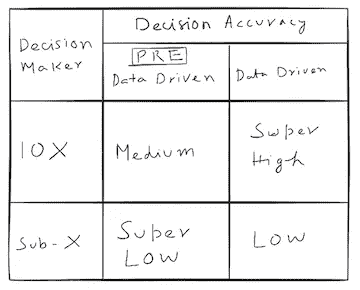 Decision Accuracy
Decision
Maker
PRE
Data Driven
Data Driven
10X
Medium
Super
High
Sub-X
Super
Low
Low